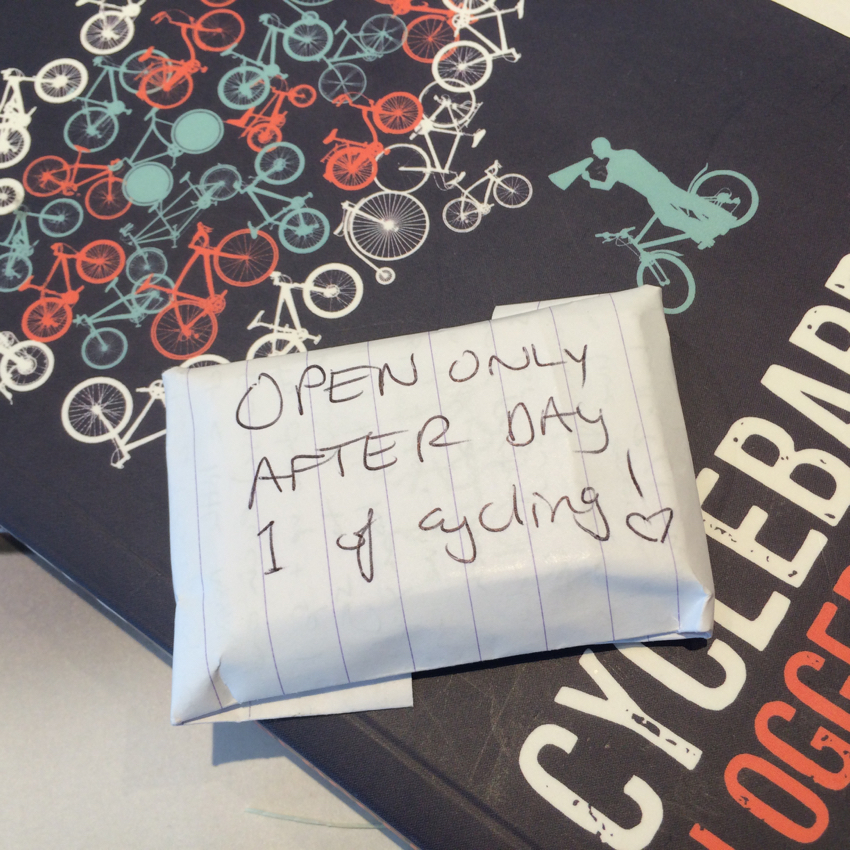 OPEN ONLY
AFTER DAY
1 of cycling!
CYCLEBAR
LOGGE